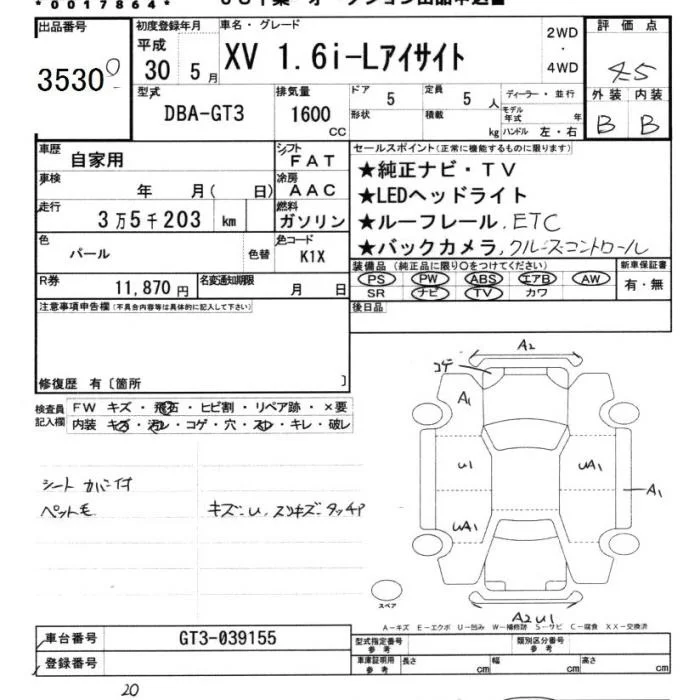 *0017864*
出品番号
35300
初度登録年月
平成
30年 5月
車名・グレード
XV 1.6i-Lアイサイト
2WD
・
4WD
評価点
4.5
外装 内装
B B
型式
DBA-GT3
排気量
1600
CC
ドア
5
定員
5 人
形状
積載
kg
ディーラー・並行
モデル年式
年
ハンドル 左・右
車歴
自家用
シフト
FAT
車検
年 月( 日)
冷房
AAC
走行
3万5千203 km
燃料
ガソリン
色
パール
色替
色コード
K1X
R券
11,870円
名変通知期限
月 日
セールスポイント(正常に機能するものに限ります)
★純正ナビ・TV
★LEDヘッドライト
★ルーフレール,ETC
★バックカメラ,クルーズコントロール
装備品(純正品に限り○をつけてください)
PS PW ABS エアB AW
SR ナビ TV カワ
新車保証書
有・無
後日品
注意事項申告欄(不具合内容等は具体的に記入して下さい)
修復歴 有〔箇所 〕
検査員
記入欄
FW キズ・飛石・ヒビ割・リペア跡・×要
内装 キズ・汚レ・コゲ・穴・スレ・キレ・破レ
シート
ペット毛
キズ・U,スリキズ・タッチP
コゲ
A2
A1
U1
UA1
A1
UA1
A2 U1
スペア
A-キズ E-エクボ U-凹み W-補修跡 S-サビ C-腐食 XX-交換済
車台番号
GT3-039155
登録番号
型式指定番号
参考
類別区分番号
参考
車庫証明用
参考
長さ cm
幅 cm
高さ cm
20